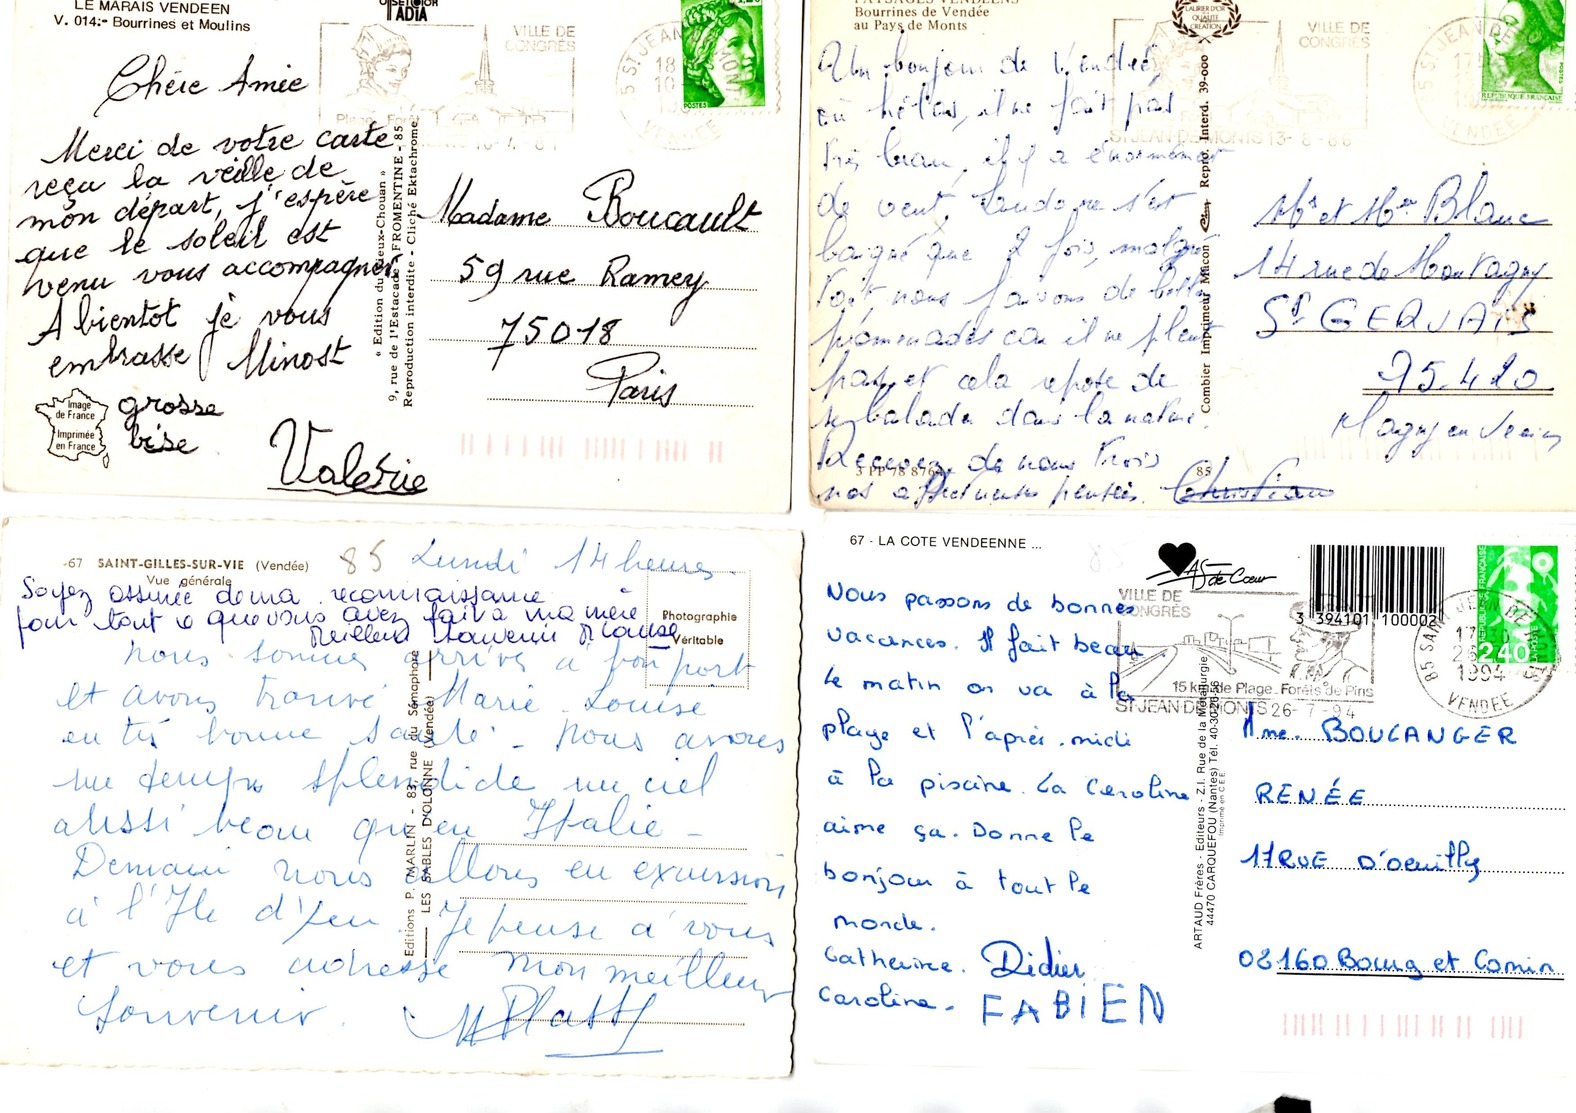 LE MARAIS VENDEEN
V. 014 - Bourrines et Moulins
VILLE DE
CONGRÈS
Chère Amie
Merci de votre carte
reçu la veille de
mon départ, j'espère
que le soleil est
venu vous accompagner
A bientot je vous
embrasse Minost
grosse
bise
Valérie
Image
de France
Imprimée
en France
« Edition du Vieux-Chouan »
9, rue de l'Estacade - FROMENTINE - 85
Reproduction interdite - Cliché Ektachrome
Madame Boucault
59 rue Ramey
75018
Paris
PAYSAGES VENDÉENS
Bourrines de Vendée
au Pays de Monts
LAURIER D'OR
QUALITE
CREATION
VILLE DE
CONGRÈS
ST JEAN DE MONTS 13-8-86
POSTES
REPUBLIQUE FRANÇAISE
Un bonjour de Vendée,
où hélas, il ne fait pas
très beau, il y a énormément
de vent, s'est
baigné que 2 fois, malgré
tout, nous faisons de belles
promenades car il ne pleut
pas, et cela repose de
se balader dans la nature.
Recevez de nous trois
nos affectueuses pensées. Christiane
3 PP 78 876
85
Combier Imprimeur Mâcon Repro. Interd. 39-000
Mr et Mme Blanc
14 rue de Montagny
St GERVAIS
95.420
Magny en Vexin
-67 SAINT-GILLES-SUR-VIE (Vendée)
Vue générale
85 Lundi 14 heures
Soyez assurée de ma reconnaissance
pour tout ce que vous avez fait à ma mère
Meilleur souvenir
Photographie
Véritable
Nous sommes arrivés à bon port
et avons trouvé Marie-Louise
en très bonne santé - Nous avons
un temps splendide un ciel
aussi beau qu'en Italie -
Demain nous allons en excursion
à l'Ile d'Yeu Je pense à vous
et vous adresse mon meilleur
Souvenir.
Editions P. MARLIN - 83, rue du Sémaphore
LES SABLES D'OLONNE (Vendée)
67 - LA COTE VENDEENNE ...
AS de Cœur
3 394101 100002
VILLE DE
CONGRÈS
15 km de Plage. Forêts de Pins
ST JEAN DE MONTS 26-7-94
17H30
26-7
1994
VENDEE
2,40
Nous passons de bonnes
vacances. Il fait beau
le matin on va à la
plage et l'après-midi
à la piscine. La Caroline
aime ça. Donne le
bonjour à tout le
monde.
Catherine. Didier
Caroline. FABIEN
ARTAUD Frères - Editeurs - Z.I. Rue de la Métallurgie
44470 CARQUEFOU (Nantes) Tél. 40-30-26-56
Imprimé en C.E.E.
Mme. BOULANGER
RENÉE
17 RUE D'oeuilly
02160 Bourg et Comin